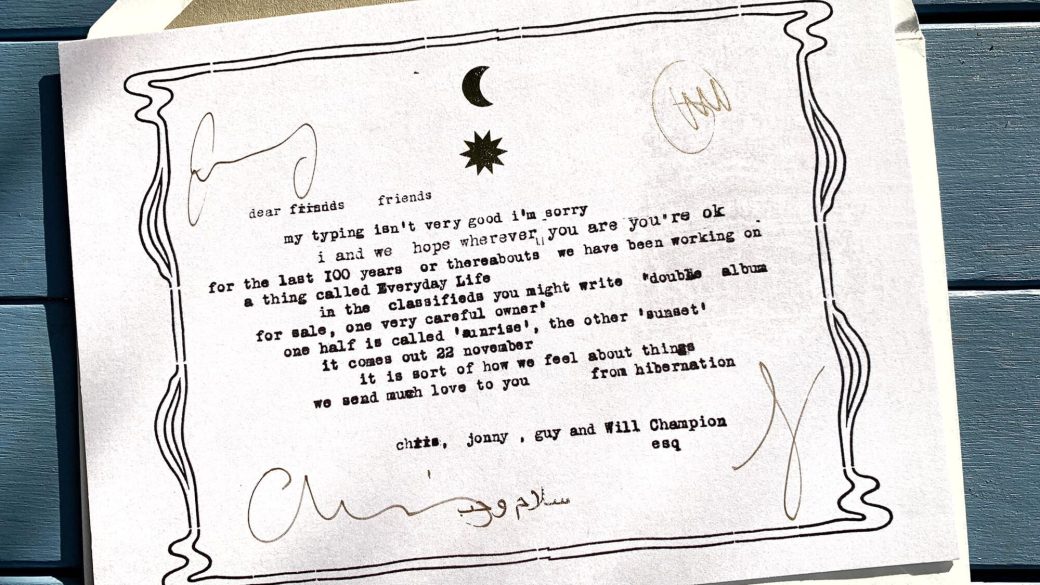 dear friends friends
my typing isn't very good i'm sorry
i and we hope wherever you are you're ok
for the last I00 years or thereabouts we have been working on
a thing called Everyday Life
in the classifieds you might write 'double album
for sale, one very careful owner'
one half is called 'sunrise', the other 'sunset'
it comes out 22 november
it is sort of how we feel about things
we send much love to you from hibernation
chris, jonny , guy and Will Champion
esq
سلام و حب